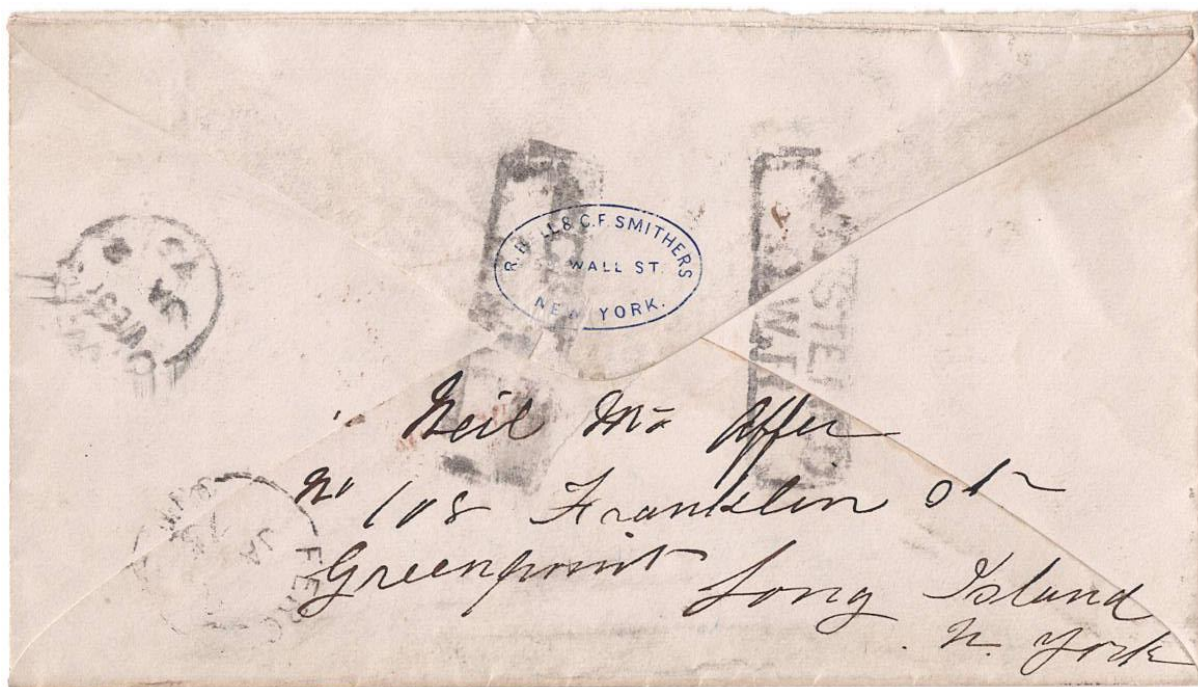 R. BELL & C.F. SMITHERS
WALL ST.
NEW YORK.
JA
C. WEST
JA
FERG
Neil Mc Affer
No 108 Franklin St
Greenpoint Long Island
N. York